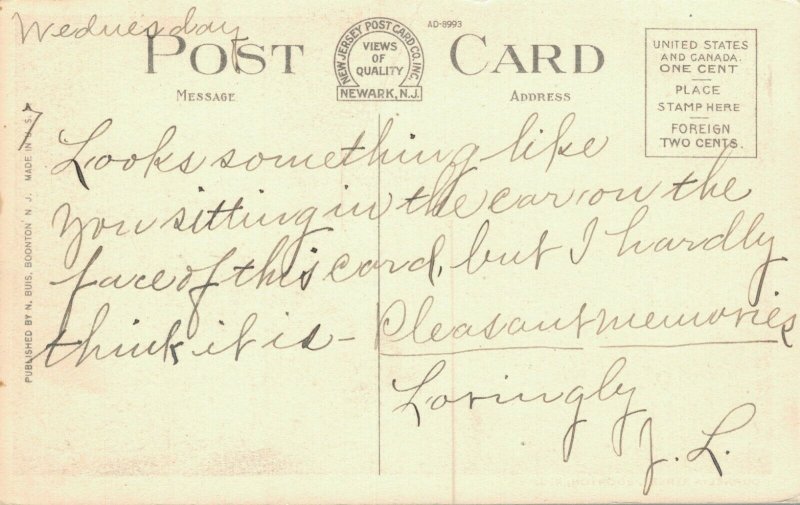 Wednesday
POST CARD
AD-8993
NEW JERSEY POST CARD CO. INC.
VIEWS
OF
QUALITY
NEWARK, N.J.
MESSAGE
ADDRESS
UNITED STATES
AND CANADA.
ONE CENT
PLACE
STAMP HERE
FOREIGN
TWO CENTS.
PUBLISHED BY N. BUIS, BOONTON N. J. MADE IN U. S. A.
Looks something like
you sitting in the car, on the
face of this card, but I hardly
think it is - Pleasant memories
Lovingly
J. L.